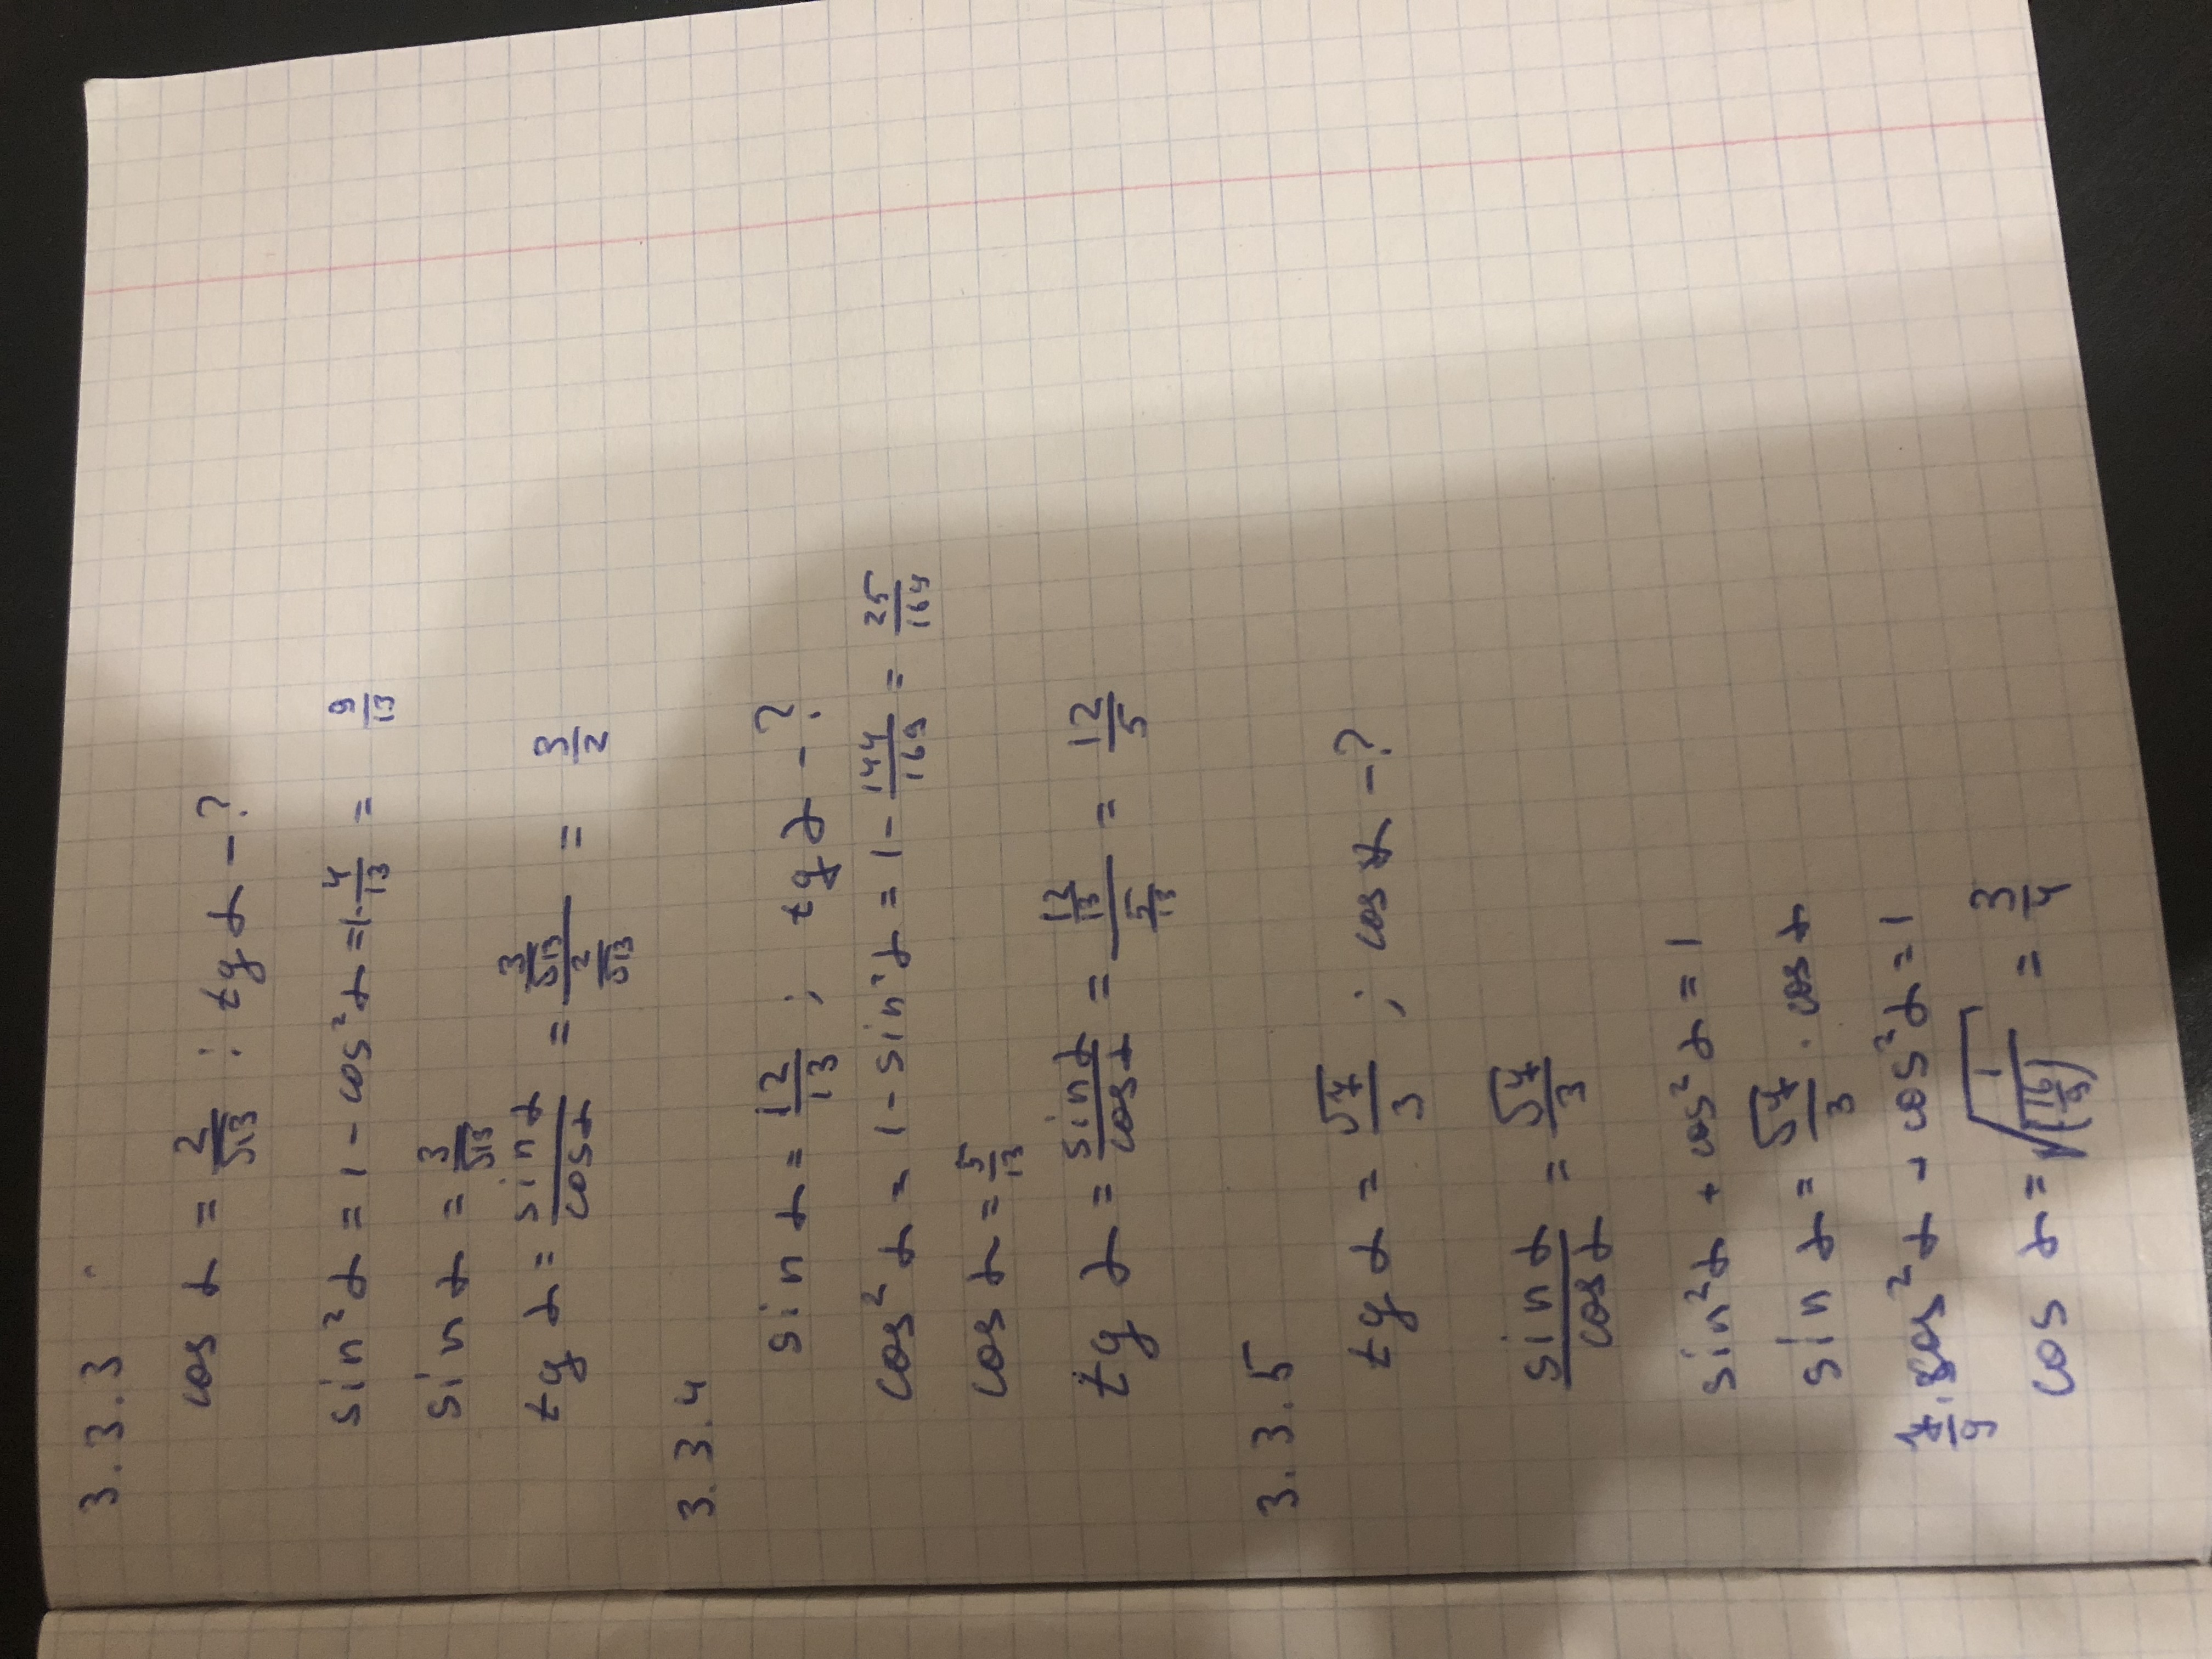 3.3.3
cos α = 2/√13 ; tg α - ?
sin²α = 1 - cos²α = 1 - 4/13 = 9/13
sin α = 3/√13
tg α = sin α/cos α = (3/√13)/(2/√13) = 3/2
3.3.4
sin α = 12/13 ; tg α - ?
cos²α = 1 - sin²α = 1 - 144/169 = 25/164
cos α = 5/13
tg α = sin α/cos α = (12/13)/(5/13) = 12/5
3.3.5
tg α = √7/3 ; cos α - ?
sin α/cos α = √7/3
sin²α + cos²α = 1
sin α = √7/3 · cos α
7/9 · cos²α + cos²α = 1
cos α = √(1/(16/9)) = 3/4